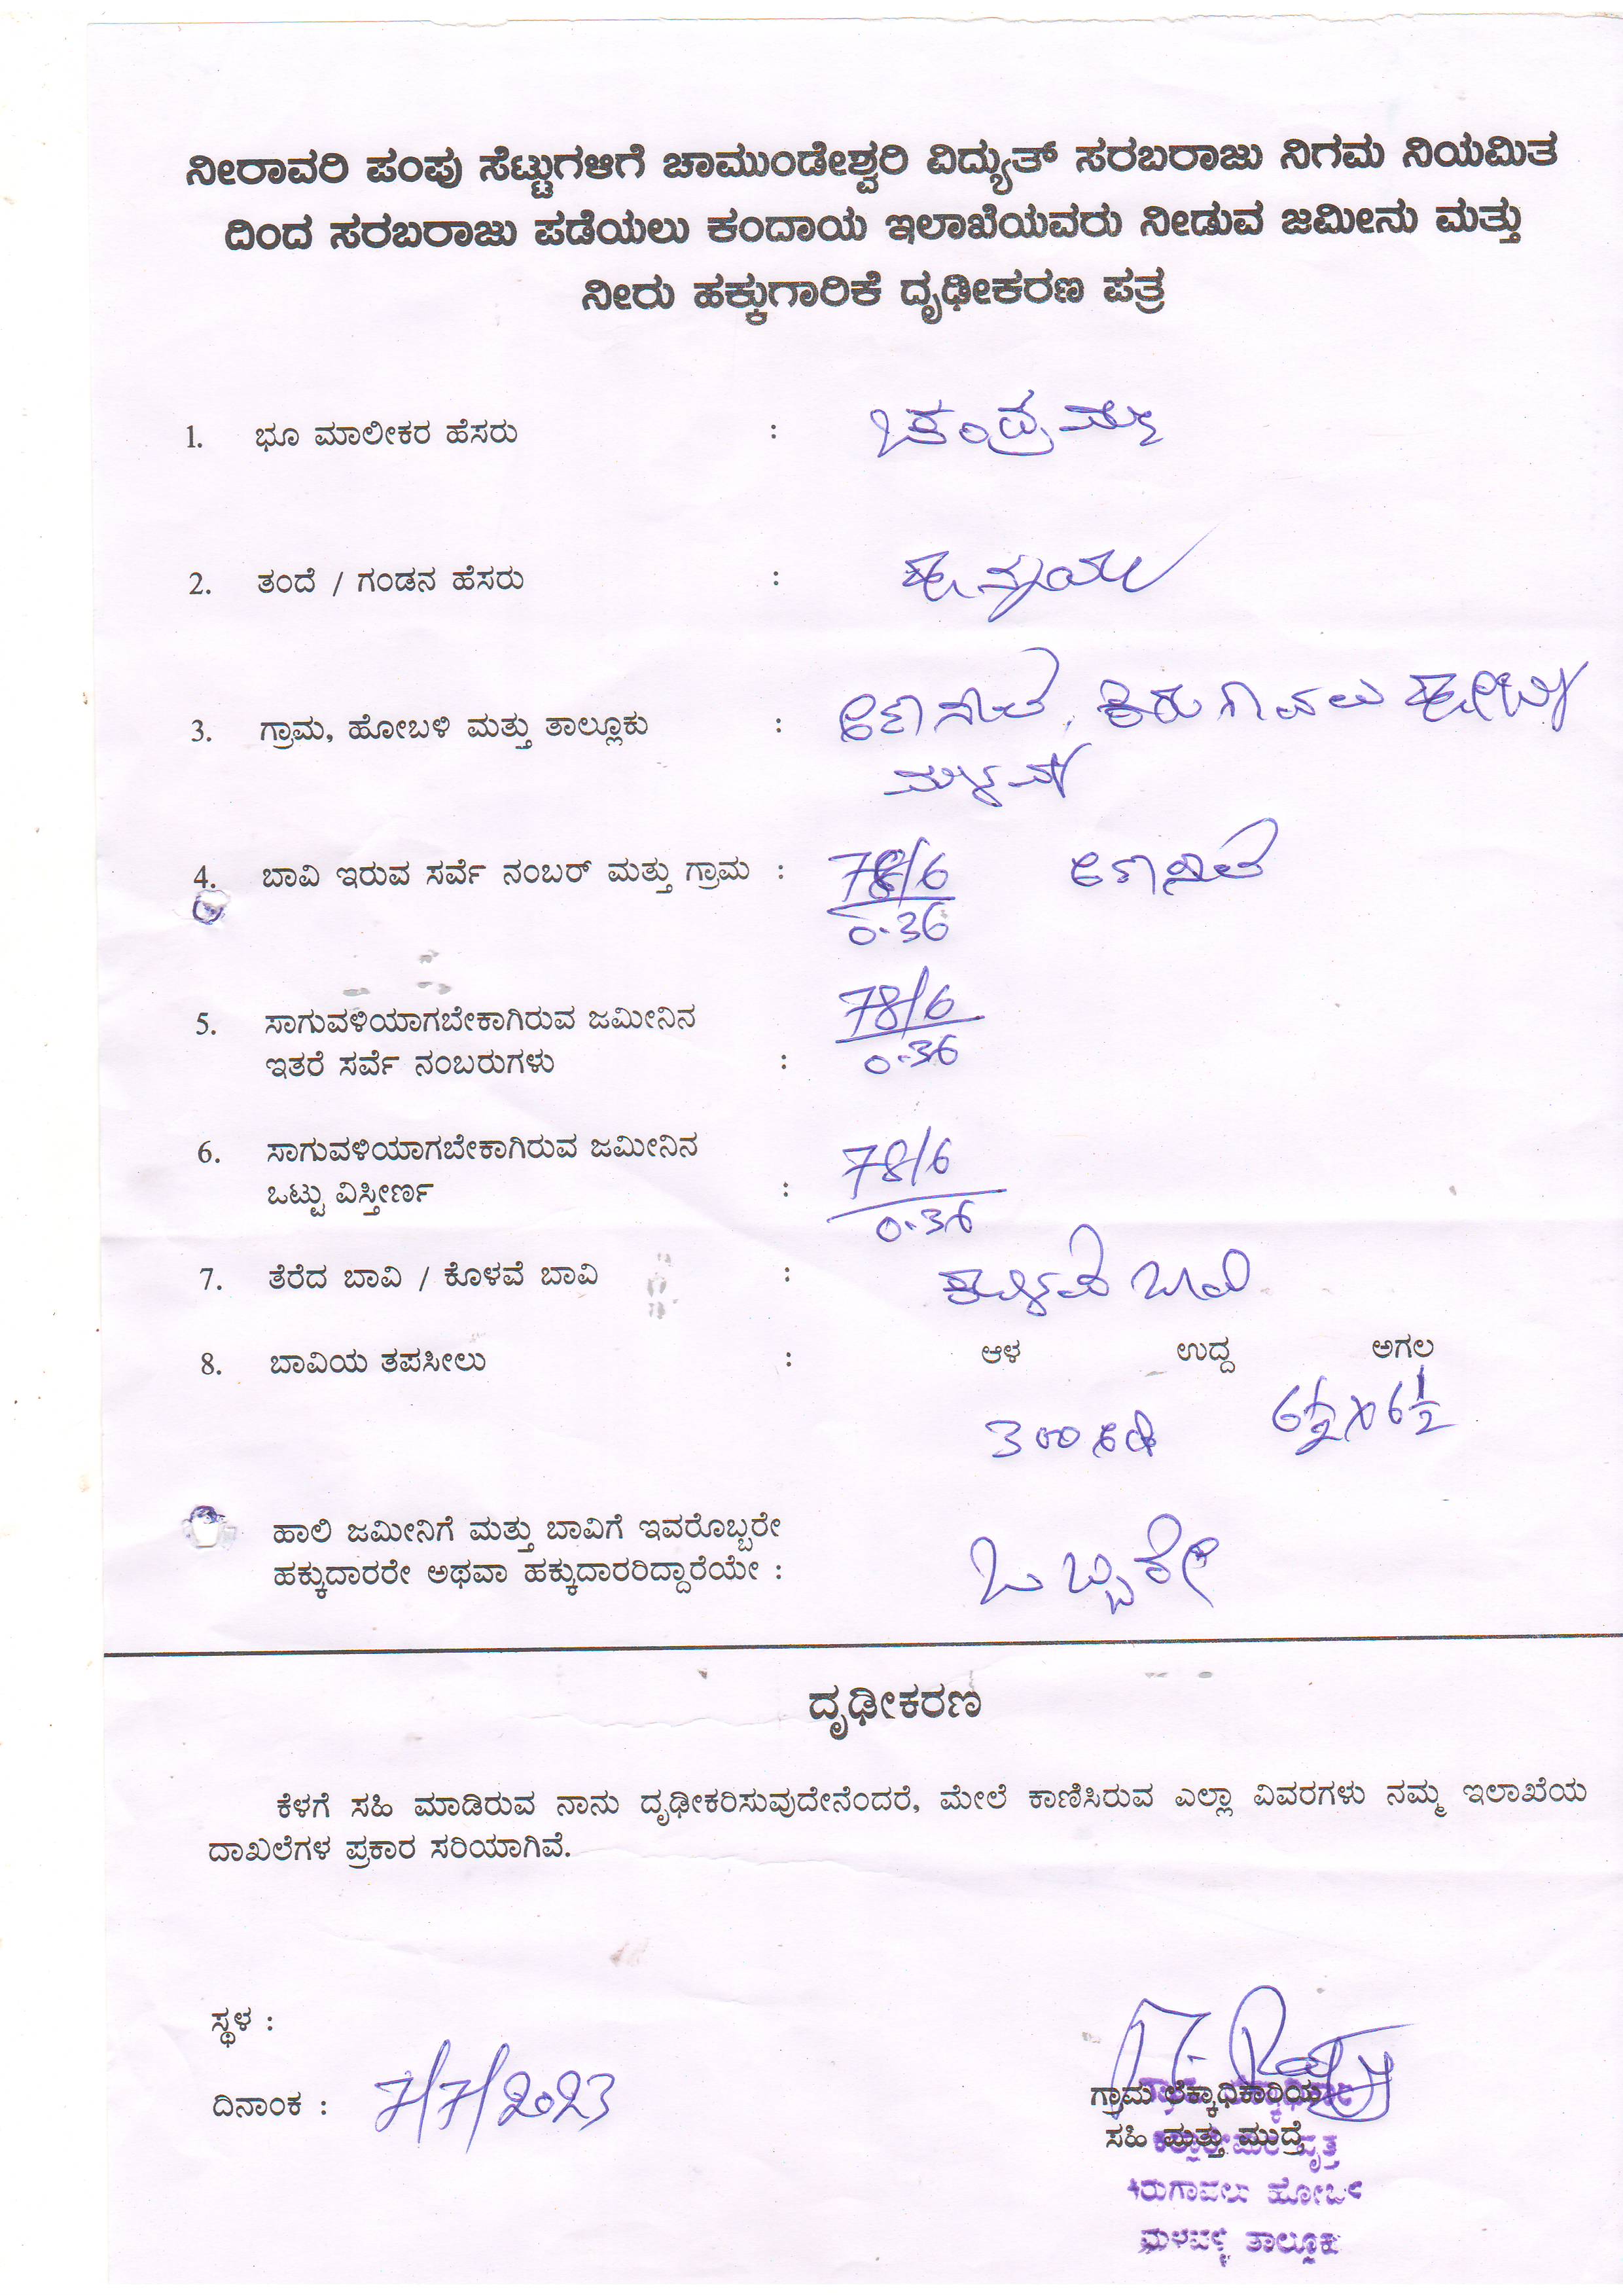 ನೀರಾವರಿ ಪಂಪು ಸೆಟ್ಟುಗಳಿಗೆ ಚಾಮುಂಡೇಶ್ವರಿ ವಿದ್ಯುತ್ ಸರಬರಾಜು ನಿಗಮ ನಿಯಮಿತ
ದಿಂದ ಸರಬರಾಜು ಪಡೆಯಲು ಕಂದಾಯ ಇಲಾಖೆಯವರು ನೀಡುವ ಜಮೀನು ಮತ್ತು
ನೀರು ಹಕ್ಕುಗಾರಿಕೆ ದೃಢೀಕರಣ ಪತ್ರ
1. ಭೂ ಮಾಲೀಕರ ಹೆಸರು :
2. ತಂದೆ / ಗಂಡನ ಹೆಸರು :
3. ಗ್ರಾಮ, ಹೋಬಳಿ ಮತ್ತು ತಾಲ್ಲೂಕು : ಕಿರುಗಾವಲು ಹೋಬಳಿ
4. ಬಾವಿ ಇರುವ ಸರ್ವೆ ನಂಬರ್ ಮತ್ತು ಗ್ರಾಮ : 78/6
0.36
5. ಸಾಗುವಳಿಯಾಗಬೇಕಾಗಿರುವ ಜಮೀನಿನ 78/6
ಇತರೆ ಸರ್ವೆ ನಂಬರುಗಳು : 0.36
6. ಸಾಗುವಳಿಯಾಗಬೇಕಾಗಿರುವ ಜಮೀನಿನ 78/6
ಒಟ್ಟು ವಿಸ್ತೀರ್ಣ : 0.36
7. ತೆರೆದ ಬಾವಿ / ಕೊಳವೆ ಬಾವಿ : ಕೊಳವೆ ಬಾವಿ
8. ಬಾವಿಯ ತಪಸೀಲು : ಆಳ ಉದ್ದ ಅಗಲ
300 ಅಡಿ 6½ x 6½
ಹಾಲಿ ಜಮೀನಿಗೆ ಮತ್ತು ಬಾವಿಗೆ ಇವರೊಬ್ಬರೇ
ಹಕ್ಕುದಾರರೇ ಅಥವಾ ಹಕ್ಕುದಾರರಿದ್ದಾರೆಯೇ : ಒಬ್ಬರೇ
ದೃಢೀಕರಣ
ಕೆಳಗೆ ಸಹಿ ಮಾಡಿರುವ ನಾನು ದೃಢೀಕರಿಸುವುದೇನೆಂದರೆ, ಮೇಲೆ ಕಾಣಿಸಿರುವ ಎಲ್ಲಾ ವಿವರಗಳು ನಮ್ಮ ಇಲಾಖೆಯ
ದಾಖಲೆಗಳ ಪ್ರಕಾರ ಸರಿಯಾಗಿವೆ.
ಸ್ಥಳ :
ದಿನಾಂಕ : 7/7/2023
ಗ್ರಾಮ ಲೆಕ್ಕಾಧಿಕಾರಿಯ
ಸಹಿ ಮತ್ತು ಮುದ್ರೆ
ವೃತ್ತ
ಕಿರುಗಾವಲು ಹೋಬಳಿ
ಮಳವಳ್ಳಿ ತಾಲ್ಲೂಕು